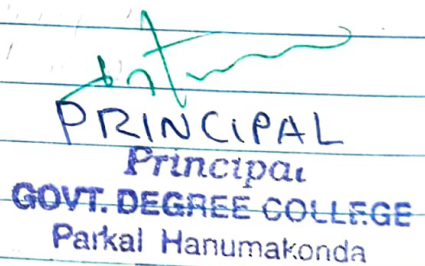 PRINCIPAL
Principal
GOVT. DEGREE COLLEGE
Parkal Hanumakonda